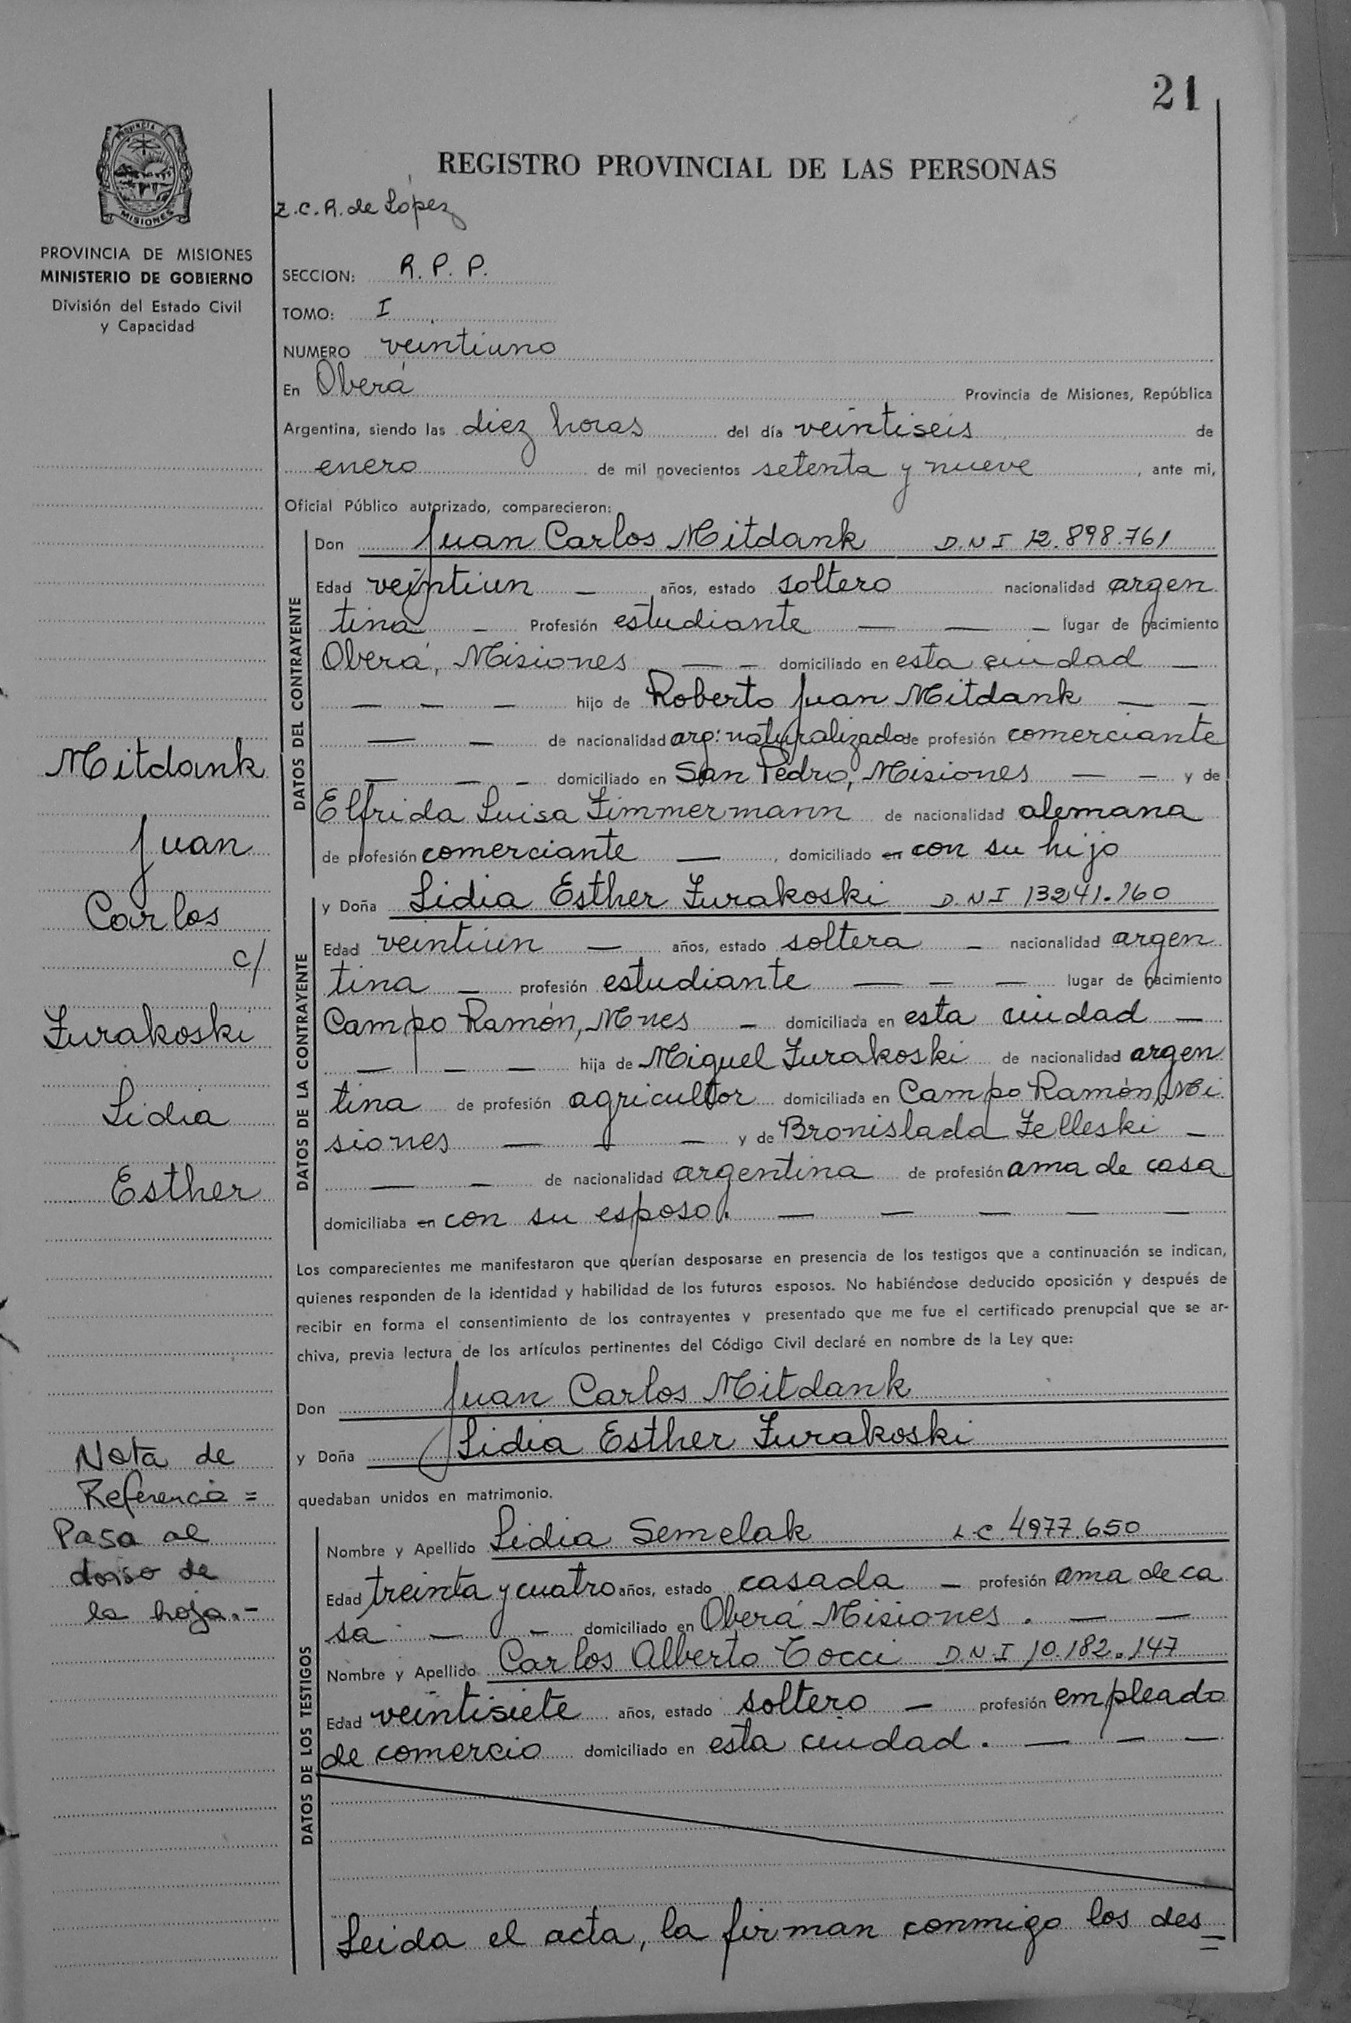 21
REGISTRO PROVINCIAL DE LAS PERSONAS
Z.C.R. de López
PROVINCIA DE MISIONES
MINISTERIO DE GOBIERNO
División del Estado Civil
y Capacidad
SECCION: R. P. P.
TOMO: I
NUMERO veintiuno
En Oberá Provincia de Misiones, República
Argentina, siendo las diez horas del día veintiseis de
enero de mil novecientos setenta y nueve, ante mi,
Oficial Público autorizado, comparecieron:
DATOS DEL CONTRAYENTE
Don Juan Carlos Mitdank D.N.I 12.898.761
Edad veintiun — años, estado soltero nacionalidad argen
tina — Profesión estudiante — — — lugar de nacimiento
Oberá, Misiones — — domiciliado en esta ciudad —
— — — hijo de Roberto Juan Mitdank — —
— — de nacionalidad arg: naturalizado de profesión comerciante
— — — domiciliado en San Pedro, Misiones — — y de
Elfrida Luisa Zimmermann de nacionalidad alemana
de profesión comerciante — , domiciliado en con su hijo
DATOS DE LA CONTRAYENTE
y Doña Lidia Esther Zurakoski D.N.I 13241.160
Edad veintiun — años, estado soltera — nacionalidad argen
tina — profesión estudiante — — — lugar de nacimiento
Campo Ramón, Mnes — domiciliada en esta ciudad —
— — — hija de Miguel Zurakoski de nacionalidad argen
tina de profesión agricultor domiciliada en Campo Ramón, Mi
siones — — — y de Bronislada Zelleski —
— — de nacionalidad argentina de profesión ama de casa
domiciliaba en con su esposo. — — — — —
Los comparecientes me manifestaron que querían desposarse en presencia de los testigos que a continuación se indican,
quienes responden de la identidad y habilidad de los futuros esposos. No habiéndose deducido oposición y después de
recibir en forma el consentimiento de los contrayentes y presentado que me fue el certificado prenupcial que se ar-
chiva, previa lectura de los artículos pertinentes del Código Civil declaré en nombre de la Ley que:
Don Juan Carlos Mitdank
y Doña Lidia Esther Zurakoski
quedaban unidos en matrimonio.
DATOS DE LOS TESTIGOS
Nombre y Apellido Lidia Semelak L.C. 4977.650
Edad treinta y cuatro años, estado casada — profesión ama de ca
sa — — domiciliado en Oberá Misiones. — —
Nombre y Apellido Carlos Alberto Cocci D.N.I 10.182.147
Edad veintisiete años, estado soltero — profesión empleado
de comercio domiciliado en esta ciudad. — — —
Leida el acta, la firman conmigo los des=
Mitdank
Juan
Carlos
c/
Zurakoski
Lidia
Esther
Nota de
Referencia =
Pasa al
dorso de
la hoja.-